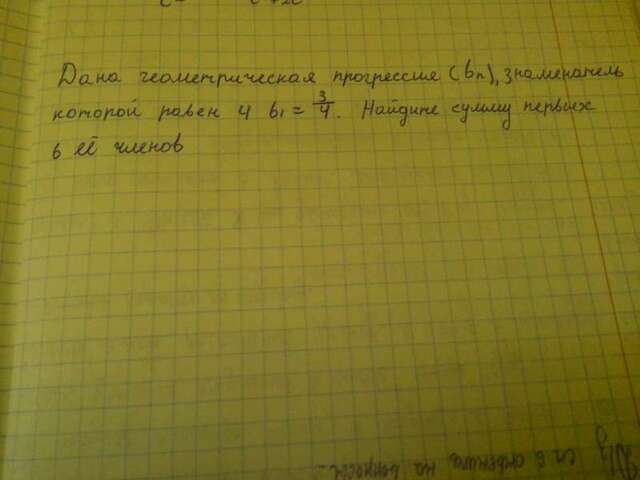 Дана геометрическая прогрессия (bn), знаменатель
которой равен 4 b1 = 3/4. Найдите сумму первых
6 её членов
на